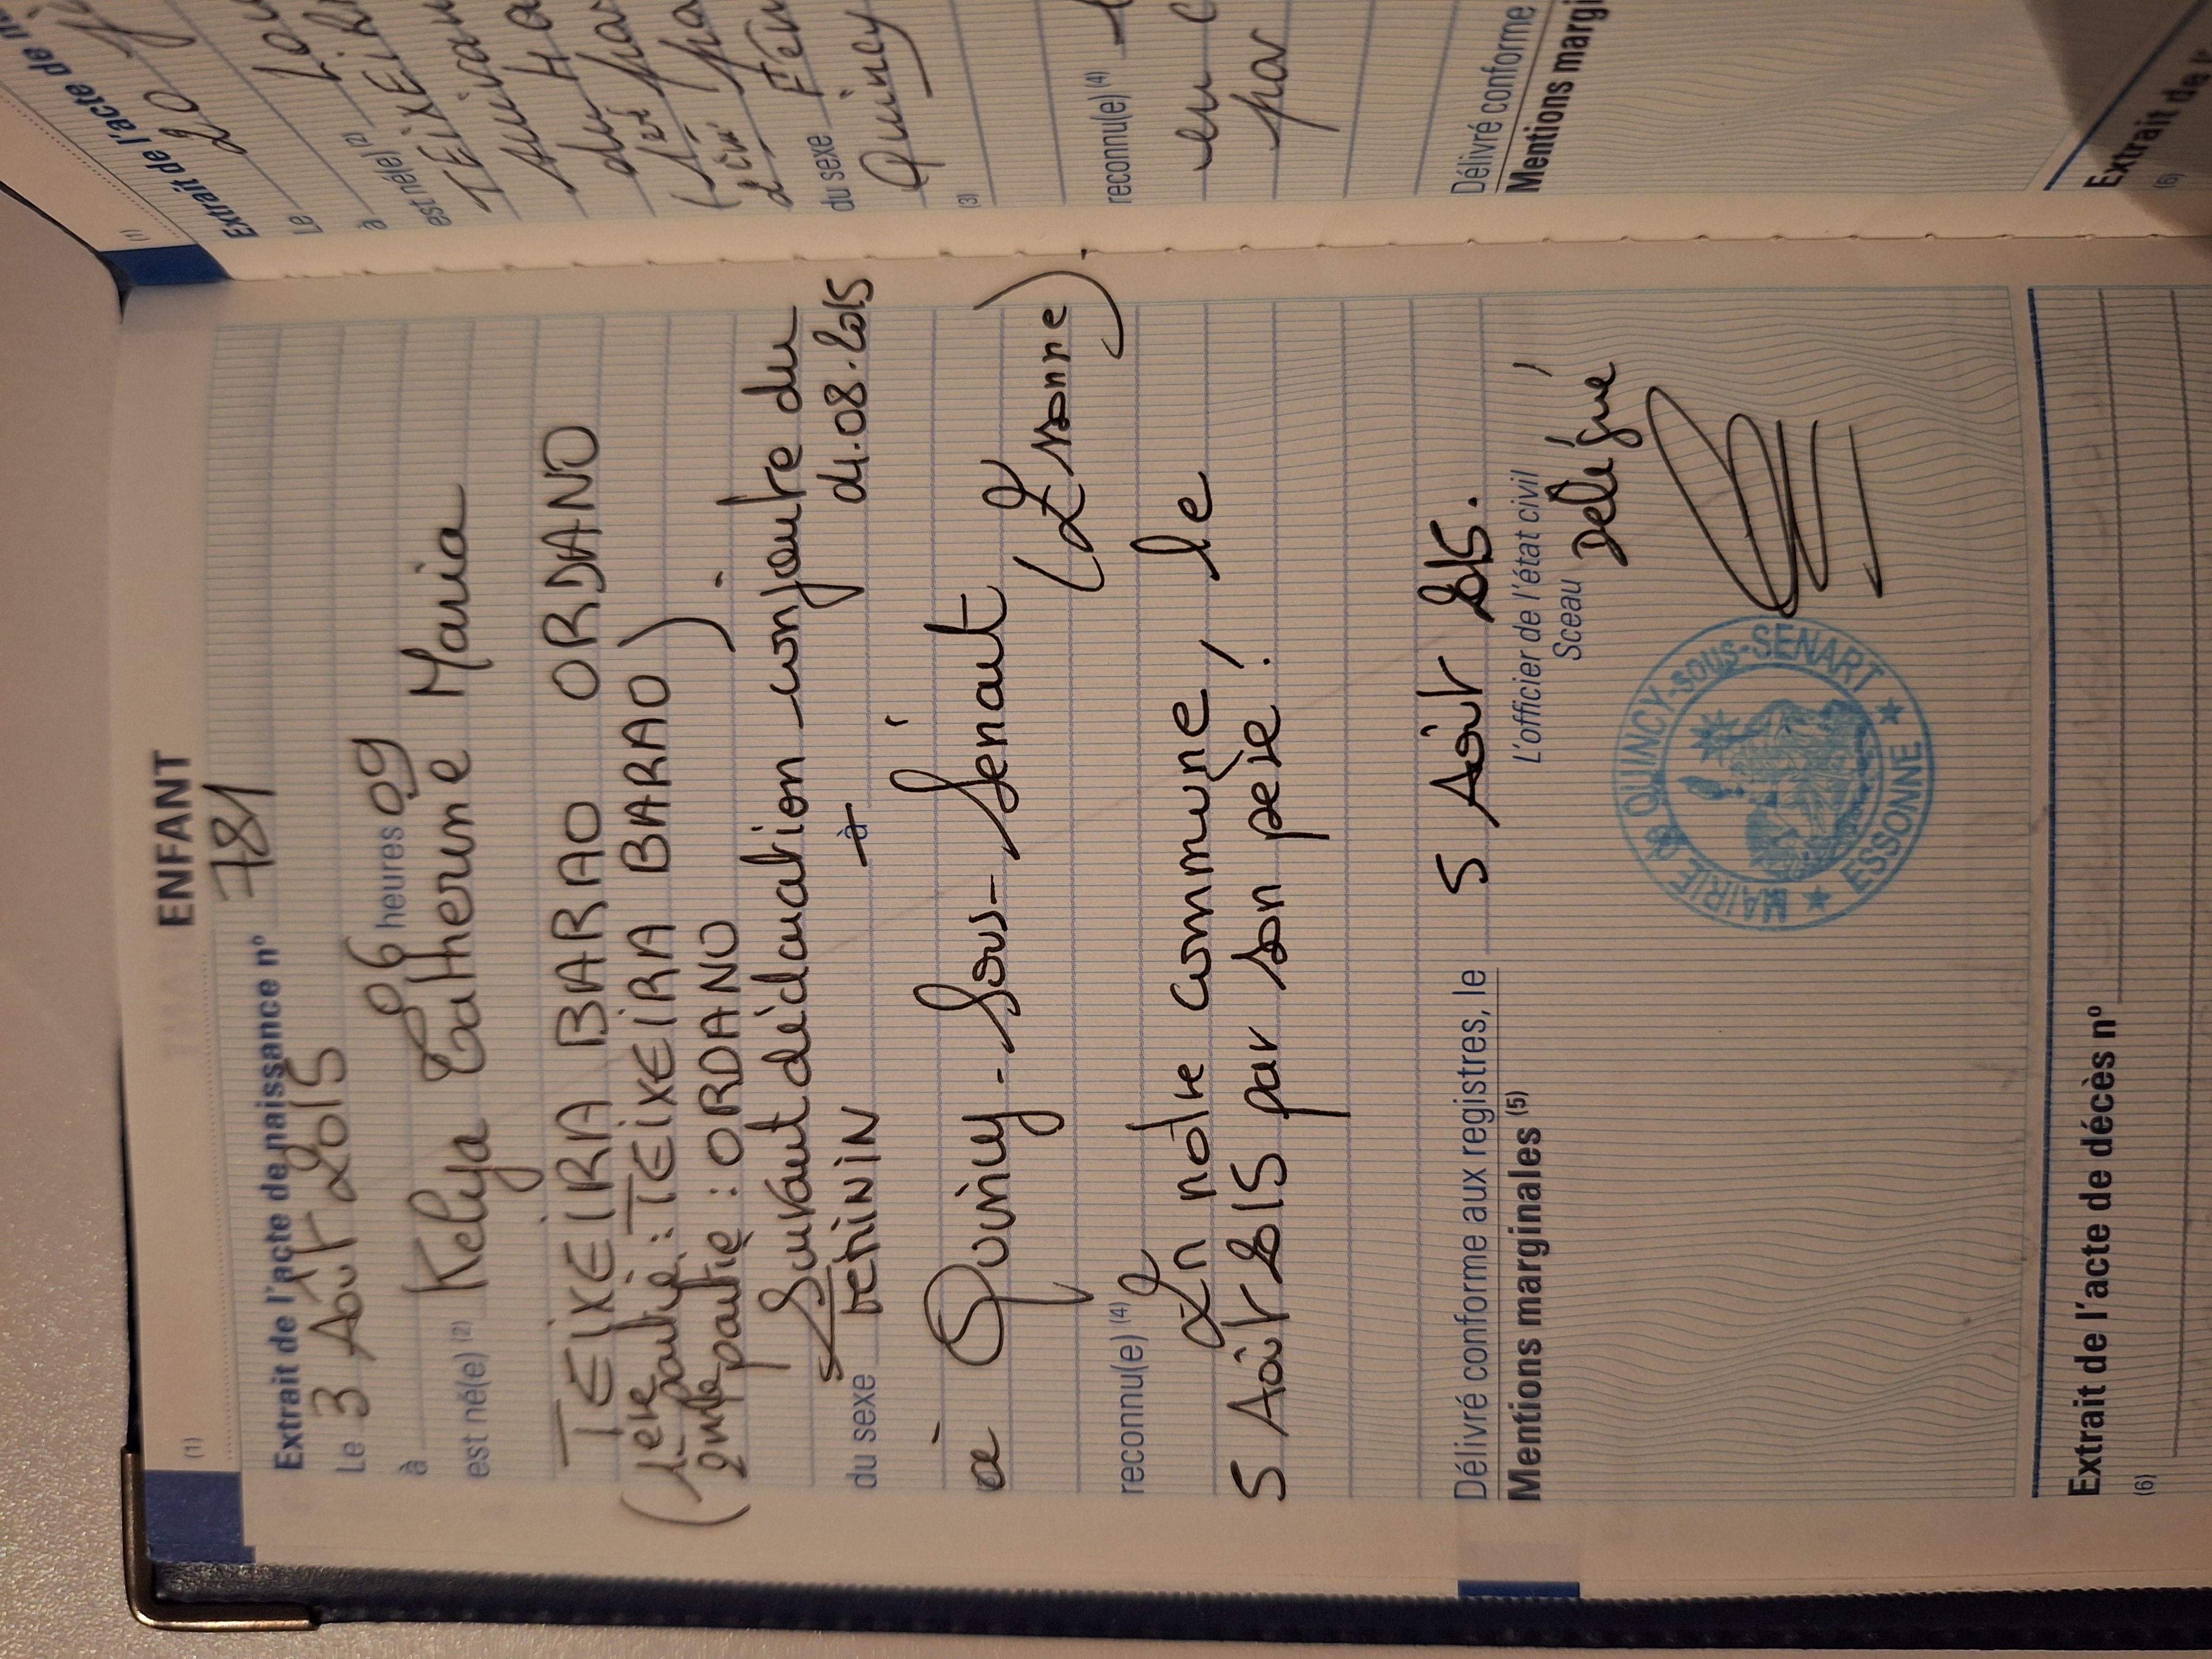 ENFANT
(1)
Extrait de l'acte de naissance nº 781
Le 3 Août 2015
à 06 heures 09
est né(e) (2) Kelya Catherine Maria
TEIXEIRA BARAO ORDANO
(1ère partie : TEIXEIRA BARAO)
2nde partie : ORDANO .
Suivant déclaration conjointe du
04.08.2015
du sexe FéMiNiN à
à Quincy-sous-Sénart
(Essonne).
reconnu(e) (4) En notre commune, le
5 Août 2015 par son père.
Délivré conforme aux registres, le 5 Août 2015.
Mentions marginales (5)
L'officier de l'état civil
Sceau
Délégué
MAIRIE de QUINCY-SOUS-SENART
ESSONNE
Extrait de l'acte de décès nº
(6)
(1)
Extrait de l'acte de
Le 20
à
est né(e) (2)
TEIXEIRA
du
du sexe
Quincy
(3)
reconnu(e) (4)
en
par
Délivré conforme
Mentions margi
Extrait de
(6)